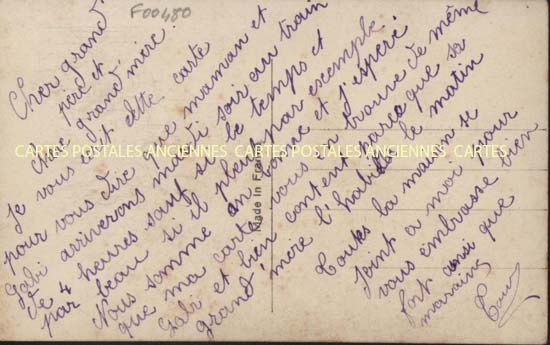 F00480
Cher grand
père et
chère grand mère
Je vous écrit cette carte
pour vous dire que maman et
Gabi arriverons mardi soir au train
de 4 heures sauf si le temps et
par beau si il pleut par exemple
Nous somme en bonne et j'espère
que ma carte vous trouve de même
Gabi et bien contente parce que sa
grand' mère l'habille le matin
Toutes la maison se
joint a moi pour
vous embrasse bien
fort ainsi que
marraine
CARTES POSTALES ANCIENNES CARTES POSTALES ANCIENNES CARTES
Made in France